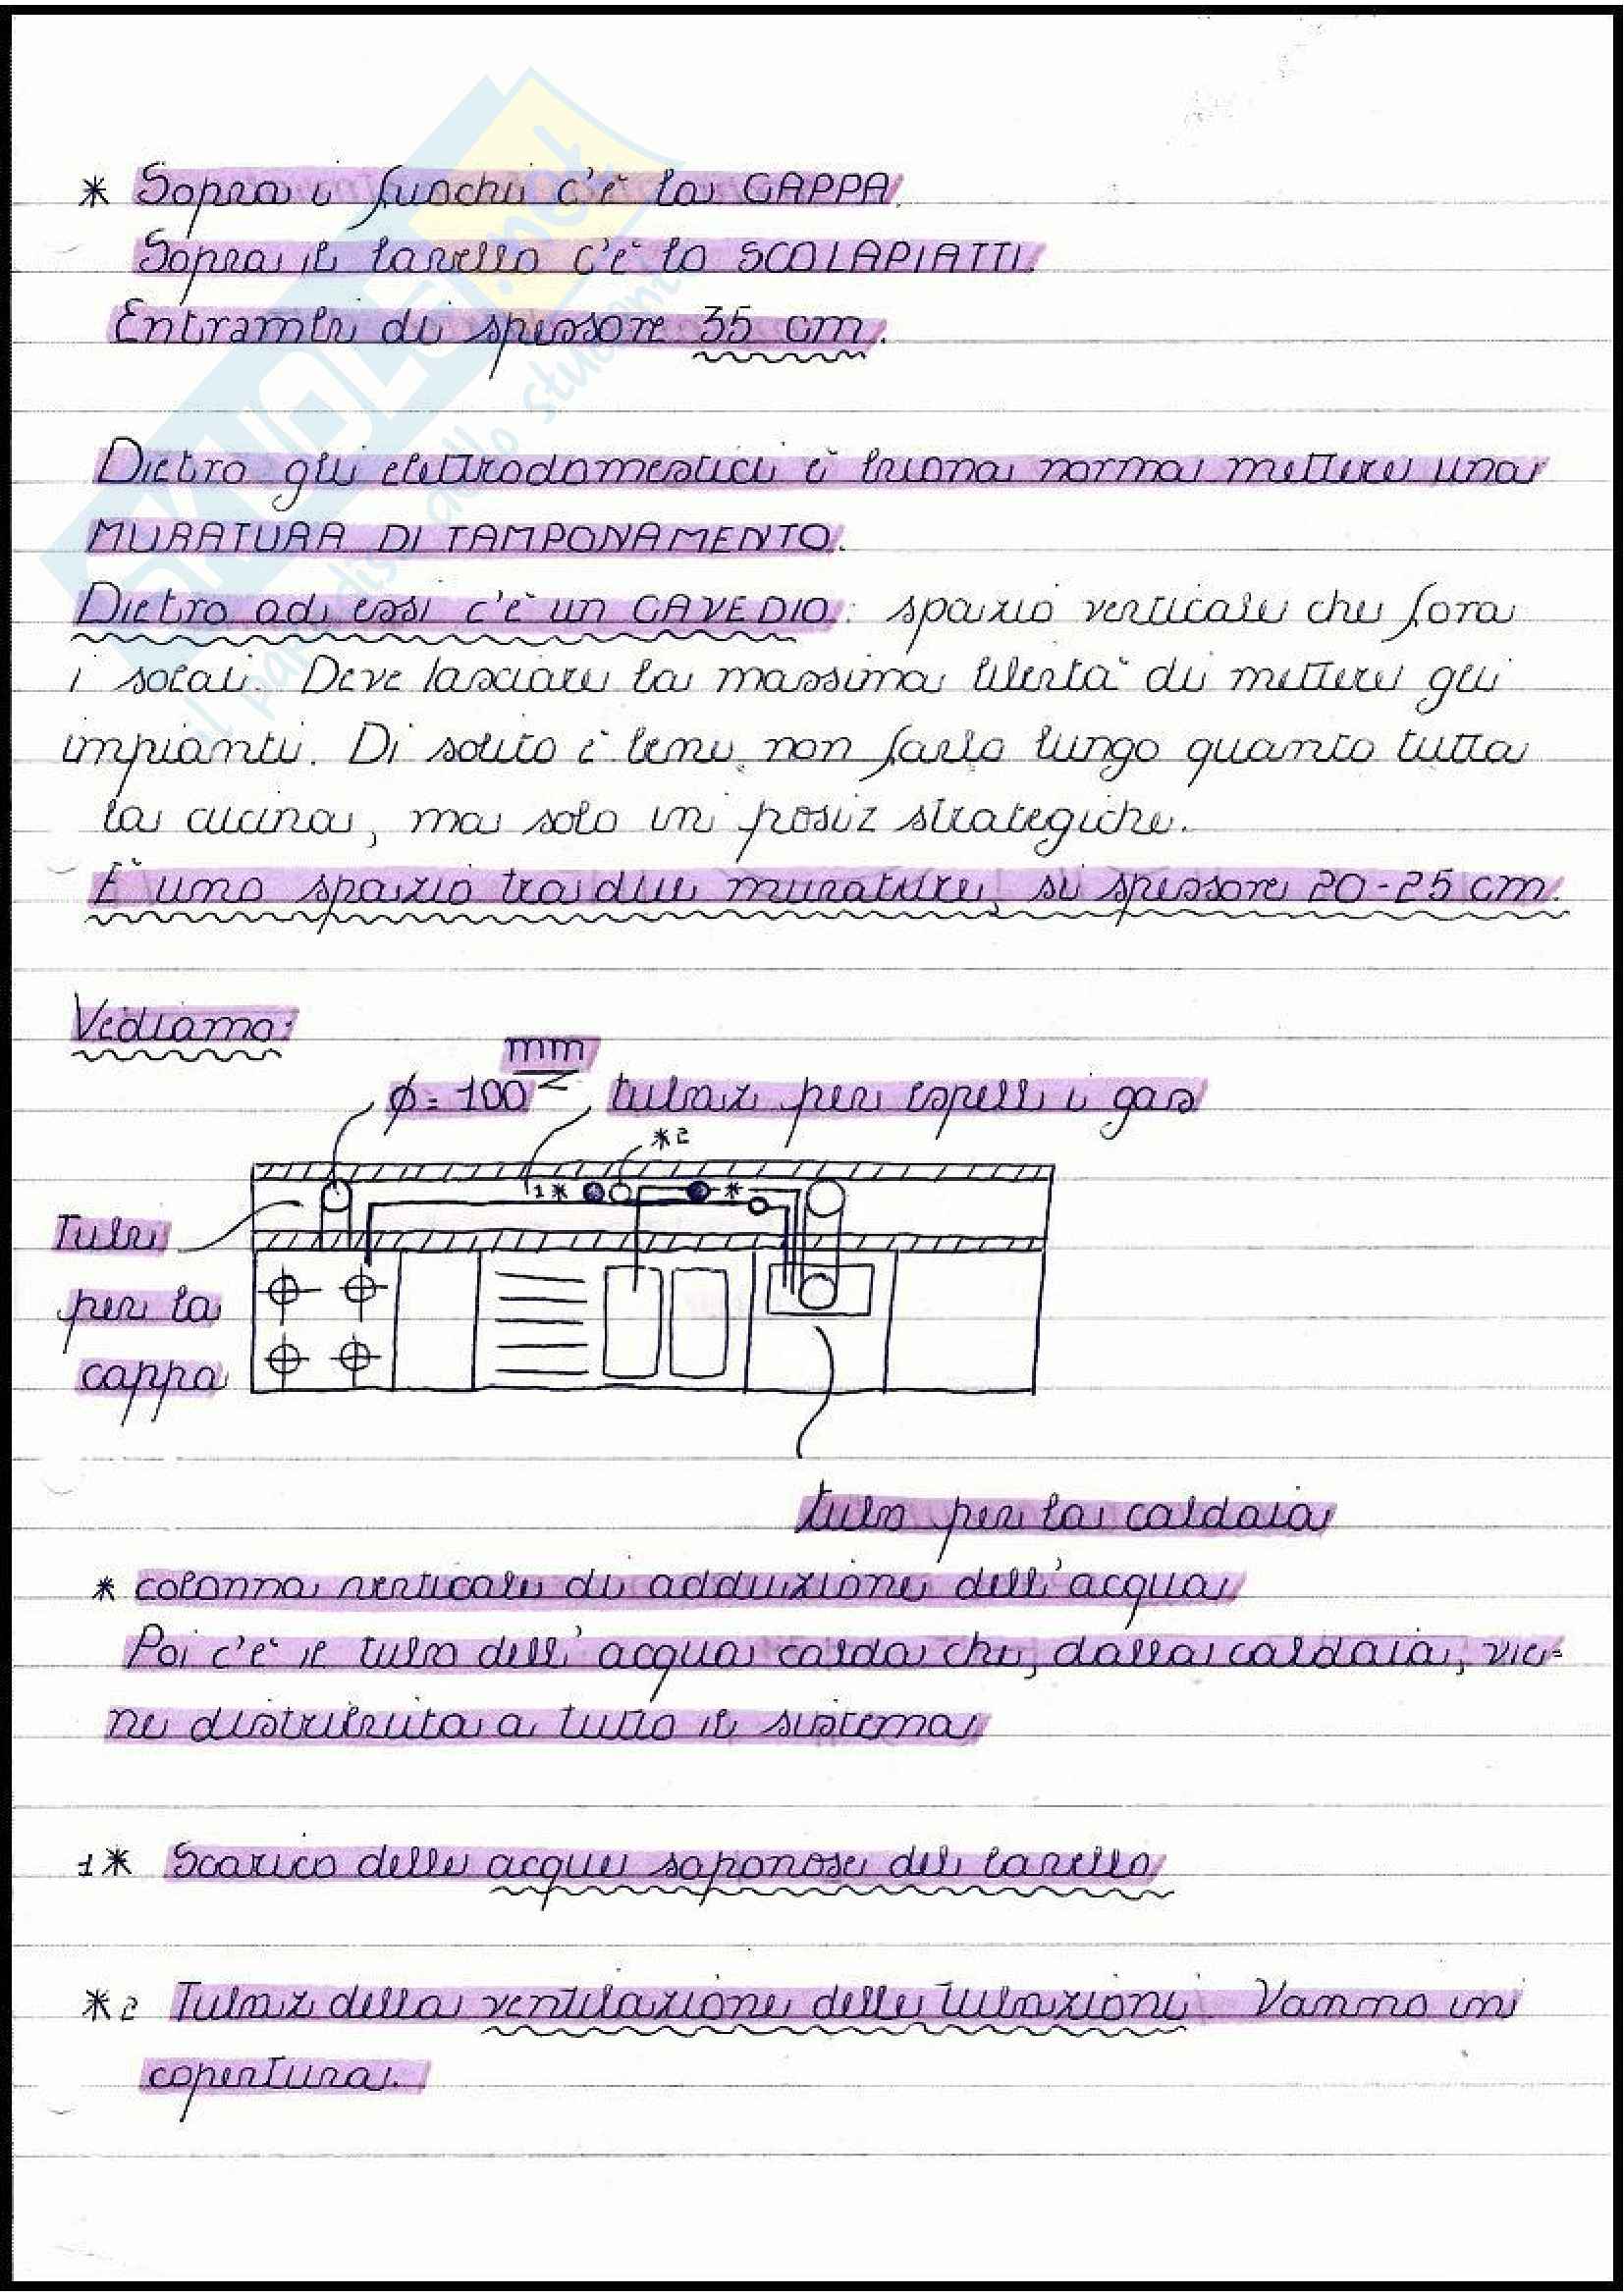 * Sopra i fuochi c'è la CAPPA.
Sopra il lavello c'è lo SCOLAPIATTI.
Entrambi di spessore 35 cm.
Dietro gli elettrodomestici è buona norma mettere una
MURATURA DI TAMPONAMENTO.
Dietro ad essi c'è un CAVEDIO: spazio verticale che fora
i solai. Deve lasciare la massima libertà di mettere gli
impianti. Di solito è bene non farlo lungo quanto tutta
la cucina, ma solo in posiz strategiche.
È uno spazio tra due murature, si spessore 20-25 cm.
Vediamo:
mm
ϕ = 100
tubaz per espell i gas
*2
1*
*
Tubi
per la
cappa
tubo per la caldaia
* colonna verticale di adduzione dell'acqua
Poi c'è il tubo dell'acqua calda che, dalla caldaia, vie=
ne distribuita a tutto il sistema
1* Scarico delle acque saponose del lavello
*2 Tubaz della ventilazione delle tubazioni. Vanno in
copertura.
SKUOLA.net
il paradiso dello studente